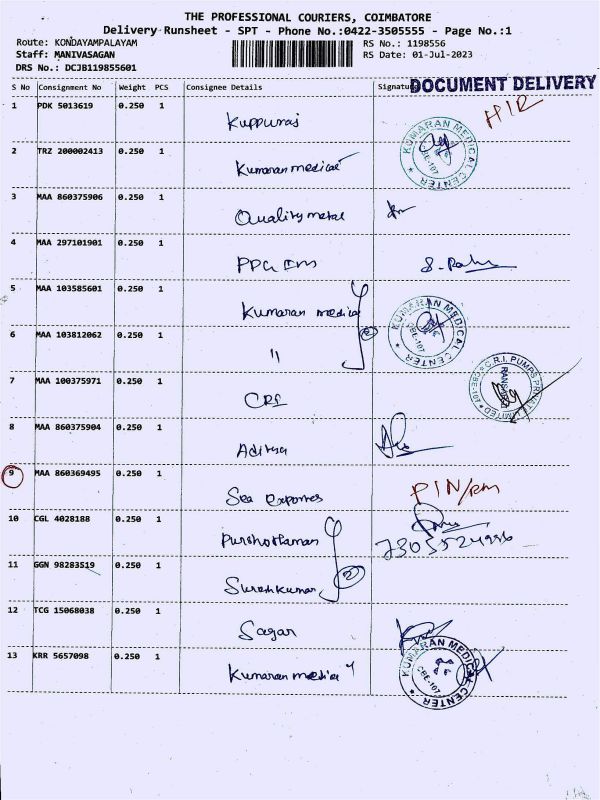 THE PROFESSIONAL COURIERS, COIMBATORE
Delivery Runsheet - SPT - Phone No.:0422-3505555 - Page No.:1
Route: KONDAYAMPALAYAM RS No.: 1198556
Staff: MANIVASAGAN RS Date: 01-Jul-2023
DRS No.: DCJB119855601
DOCUMENT DELIVERY
S No Consignment No Weight PCS Consignee Details Signature
HIR
1 PDK 5013619 0.250 1 Kuppuraj
KUMARAN MEDICAL CENTER CBE-107
2 TRZ 200002413 0.250 1 Kumaran medical
3 MAA 860375906 0.250 1 Quality metal
4 MAA 297101901 0.250 1 PPG
5 MAA 103585601 0.250 1 Kumaran medical
KUMARAN MEDICAL CENTER CBE-107
6 MAA 103812062 0.250 1 "
2
7 MAA 100375971 0.250 1 CRI
C.R.I. PUMPS PRIVATE LIMITED
8 MAA 860375904 0.250 1 Aditya
9 MAA 860369495 0.250 1 Sea exportes
10 CGL 4028188 0.250 1 Purshothaman
11 GGN 98283519 0.250 1 Sureshkumar
2
12 TCG 15068038 0.250 1 Sagar
13 KRR 5657098 0.250 1 Kumaran medical
KUMARAN MEDICAL CENTER CBE-107